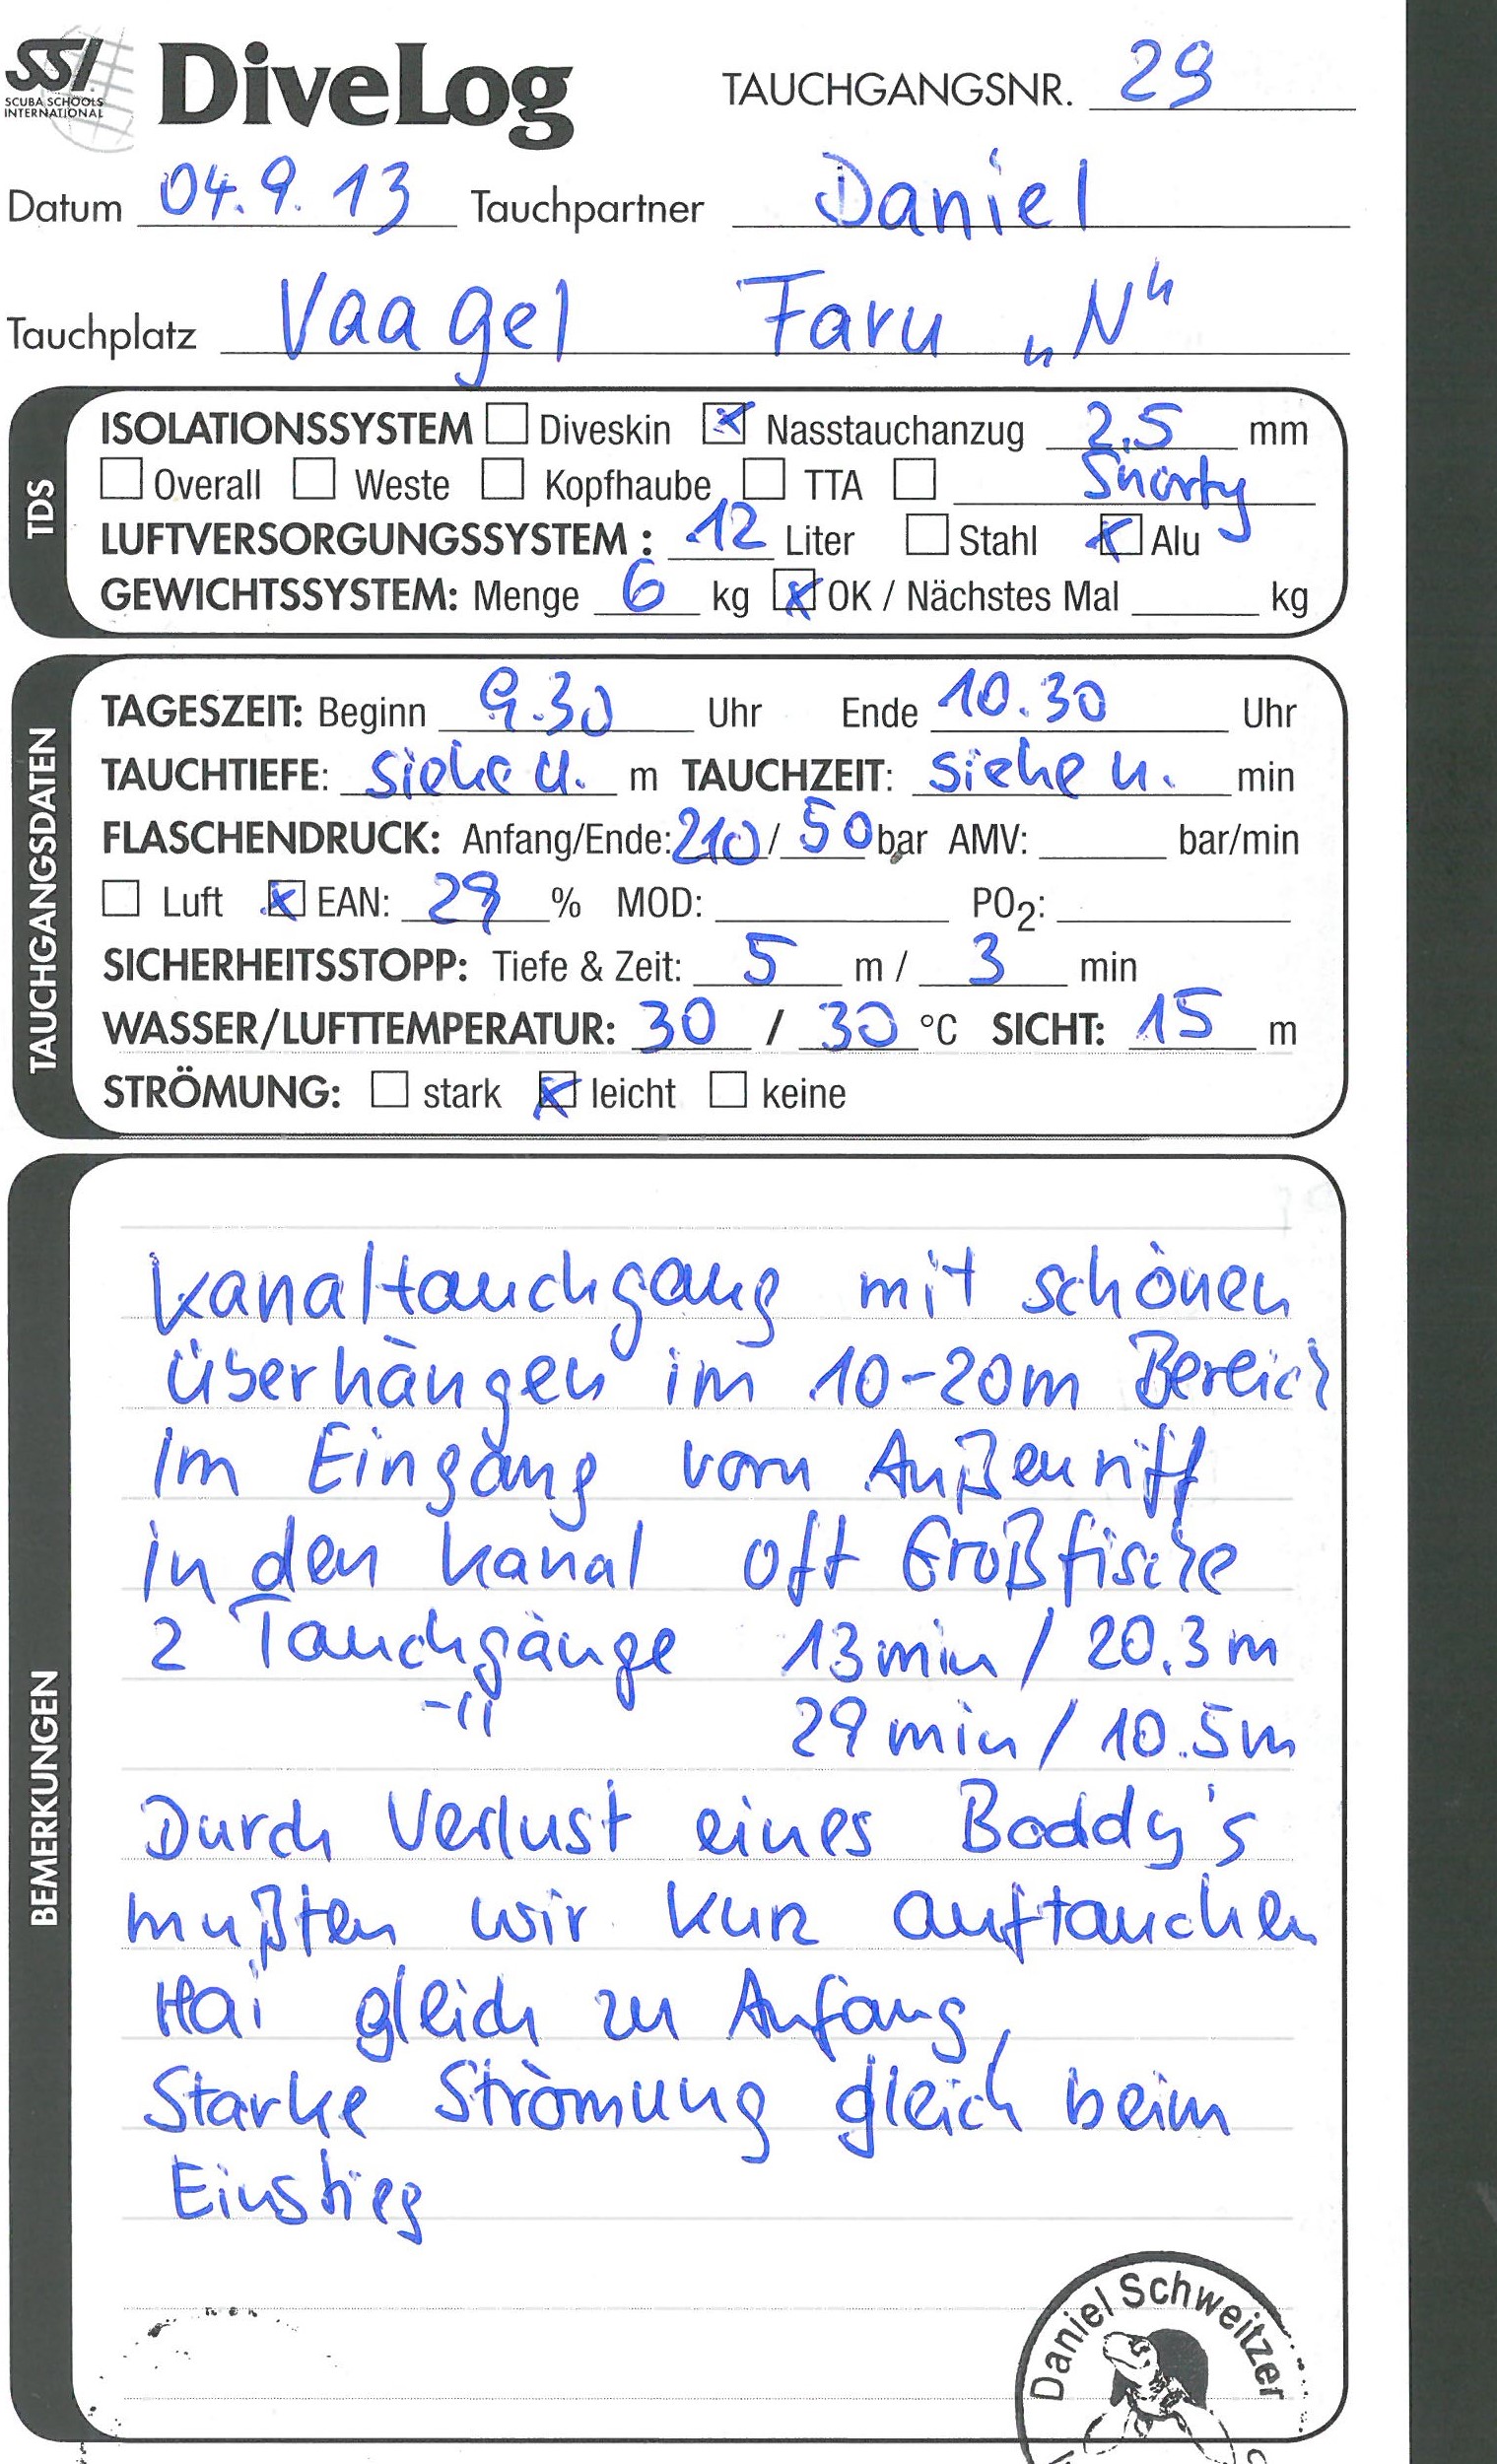 SSI DiveLog TAUCHGANGSNR. 29
SCUBA SCHOOLS
INTERNATIONAL
Datum 04.9.13 Tauchpartner Daniel
Tauchplatz Vaagel Faru „N“
TDS
ISOLATIONSSYSTEM Diveskin Nasstauchanzug 2,5 mm
Overall Weste Kopfhaube TTA Shorty
LUFTVERSORGUNGSSYSTEM: 12 Liter Stahl Alu
GEWICHTSSYSTEM: Menge 6 kg OK / Nächstes Mal kg
TAUCHGANGSDATEN
TAGESZEIT: Beginn 9.30 Uhr Ende 10.30 Uhr
TAUCHTIEFE: siehe u. m TAUCHZEIT: siehe u. min
FLASCHENDRUCK: Anfang/Ende: 210 / 50 bar AMV: bar/min
Luft EAN: 29 % MOD: PO2:
SICHERHEITSSTOPP: Tiefe & Zeit: 5 m / 3 min
WASSER/LUFTTEMPERATUR: 30 / 30 °C SICHT: 15 m
STRÖMUNG: stark leicht keine
BEMERKUNGEN
Kanaltauchgang mit schönen
überhängen im 10-20m Bereich
Im Eingang vom Außenriff
in den Kanal oft Großfische
2 Tauchgänge 13min / 20.3m
-"- 29min / 10.5m
Durch Verlust eines Boddy's
mußten wir kurz auftauchen
Hai gleich zu Anfang,
Starke Strömung gleich beim
Einstieg
Daniel Schweitzer